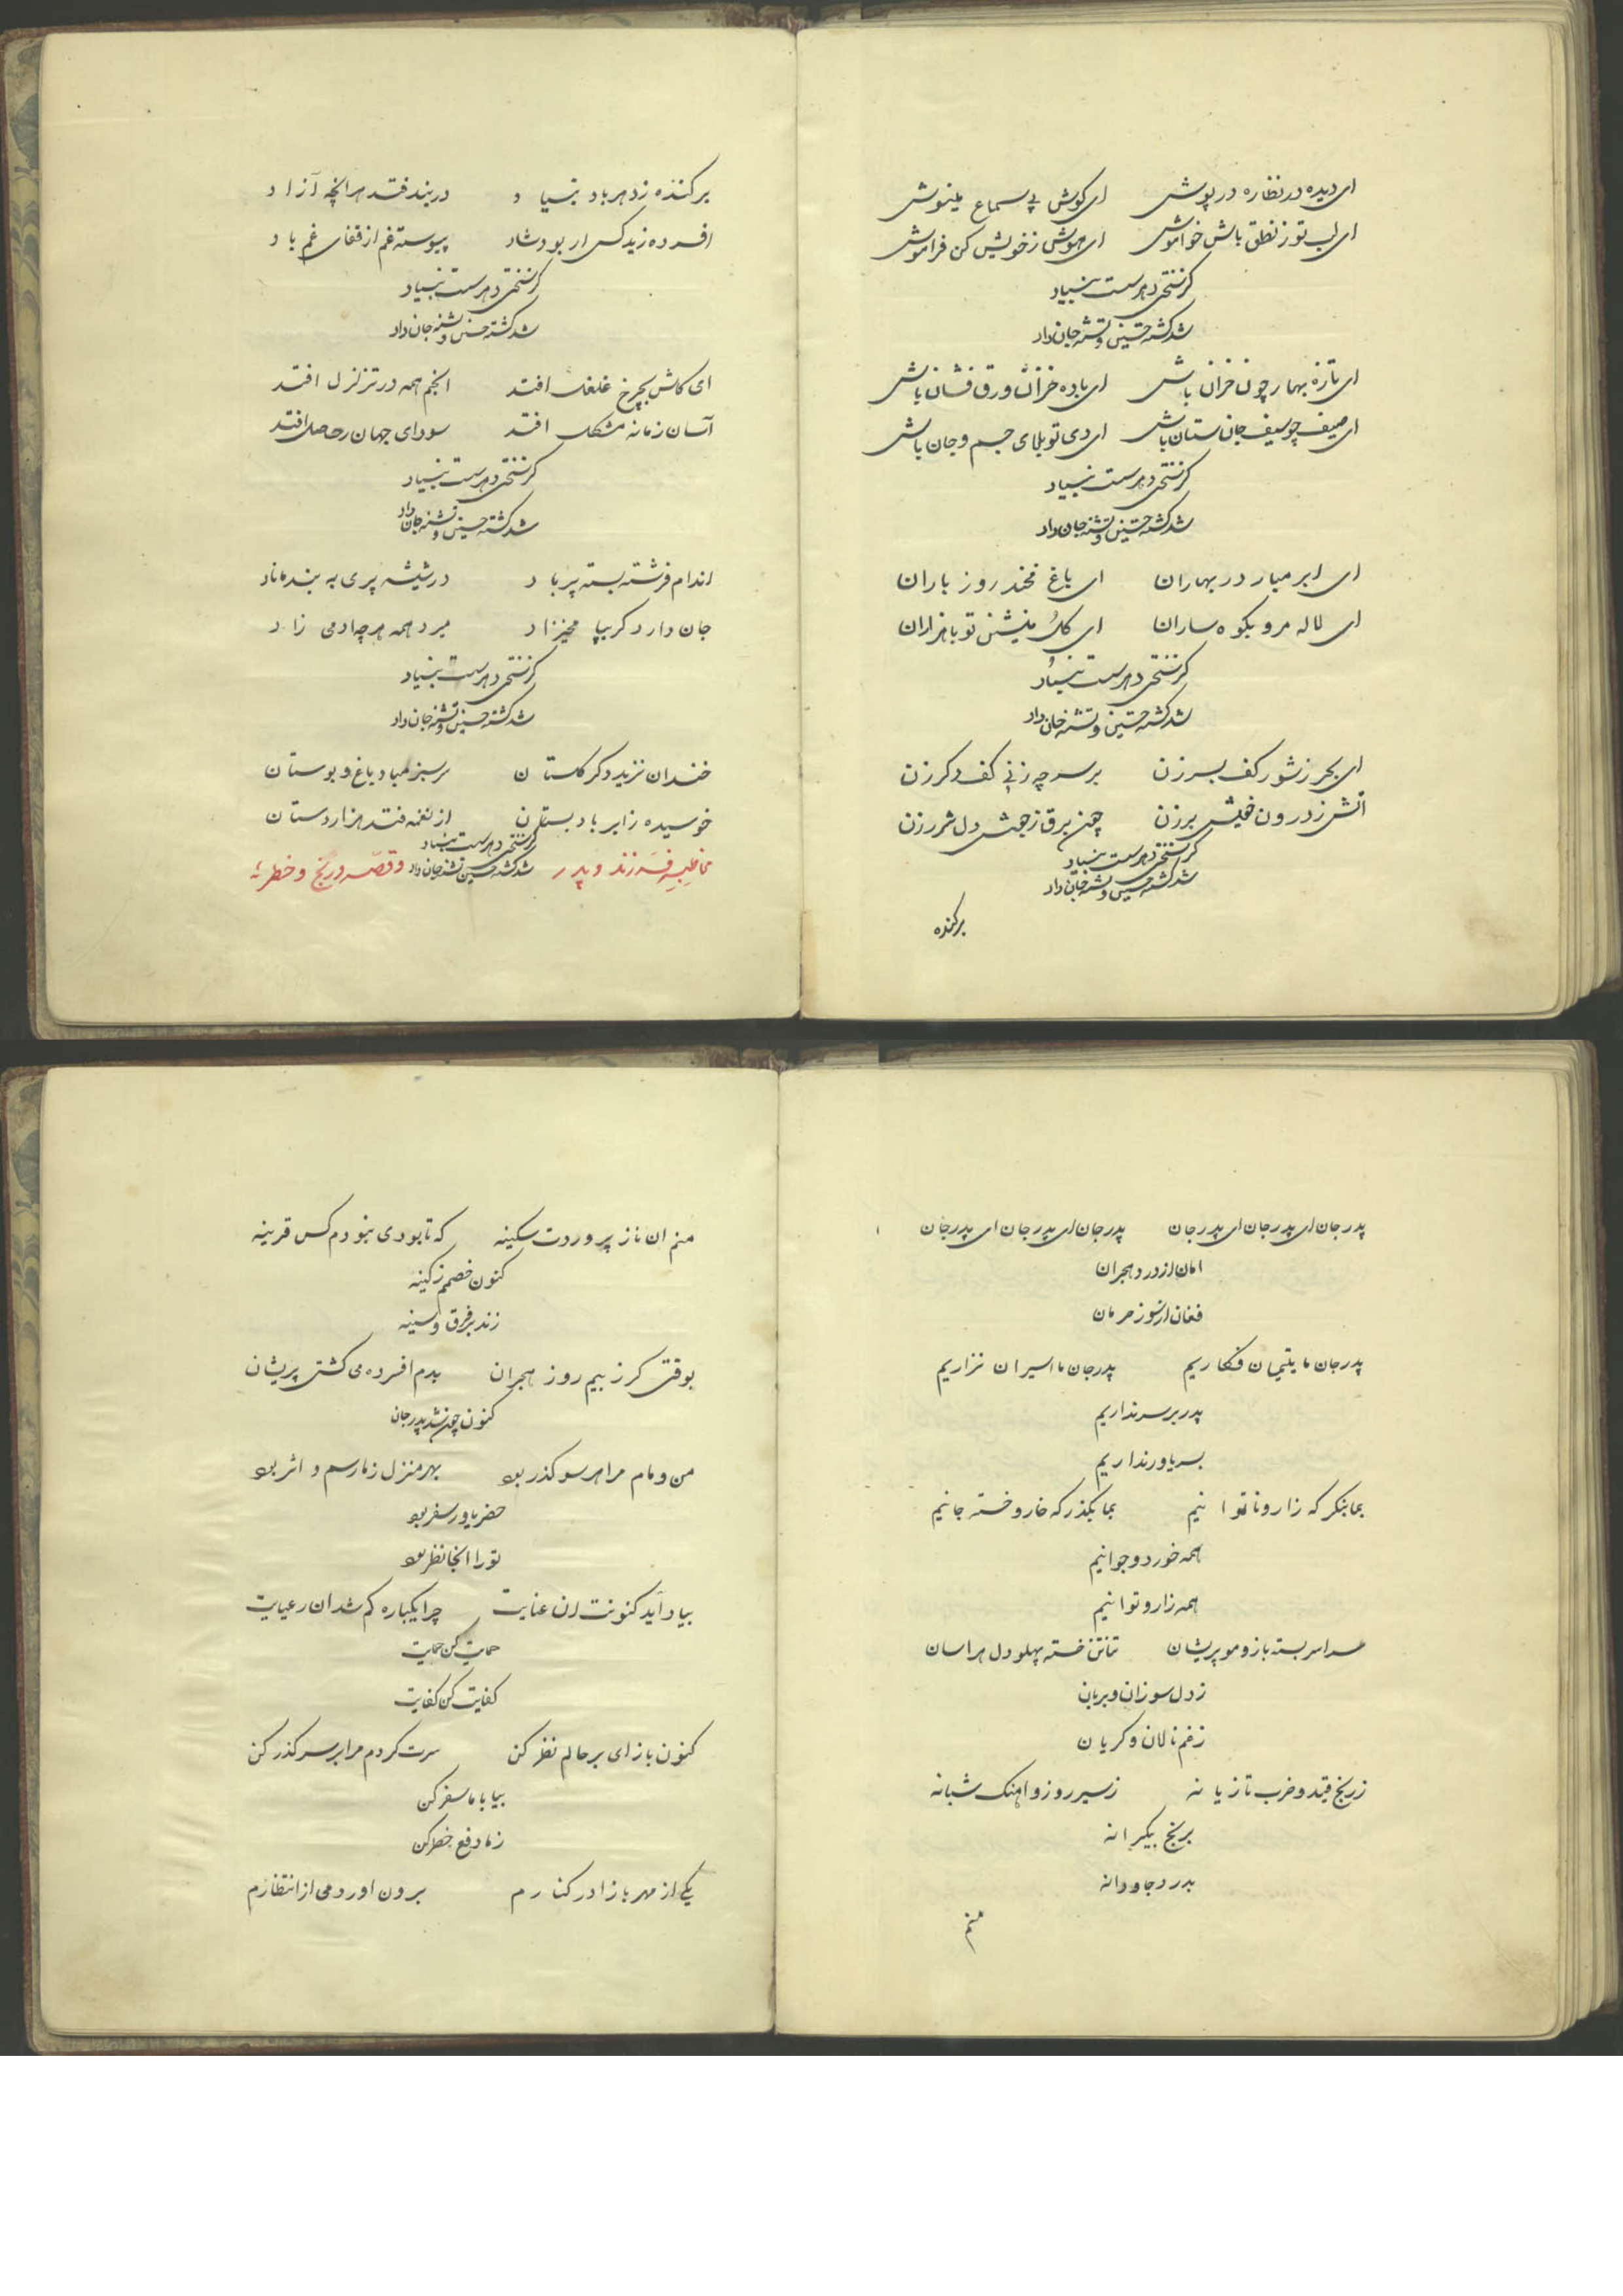 ای دیده در نظاره در پوش ای کوش پی سماع مینوش
ای لب تو ز نطق باش خواموش ای هوش ز خویش کن فراموش
کز سختی دهر سست بنیاد
شد کشته حسین و تشنه جان داد
ای تازه بهار چون خزان باش ای باده خزان ورق فشان باش
ای صیف چو سیف جان ستان باش ای دی تو بلای جسم و جان باش
کز سختی دهر سست بنیاد
شد کشته حسین و تشنه جان داد
ای ابر مبار در بهاران ای باغ مخند روز باران
ای لاله مرو بکوه ساران ای کل منشین تو با هزاران
کز سختی دهر سست بنیاد
شد کشته حسین و تشنه جان داد
ای بحر ز شور کف بسر زن بر سر چه زنی کف دکر زن
اتش ز درون خویش برزن چون برق ز جهش دل شرر زن
کز سختی دهر سست بنیاد
شد کشته حسین و تشنه جان داد
برکنده
برکنده ز دهر باد بنیاد در بند فتد هر انچه آزاد
افسرده زید کس ار بود شاد پیوسته غم از قفای غم باد
کز سختی دهر سست بنیاد
شد کشته حسین و تشنه جان داد
ای کاش بچرخ غلغل افتد انجم همه در تزلزل افتد
آسان زمانه مشکل افتد سودای جهان افتد
کز سختی دهر سست بنیاد
شد کشته حسین و تشنه جان داد
اندام فرشته بسته پر باد در شیشه پری به بند ماناد
جان دارد کر بپا مخیزاد میرد همه هر چه ادمی زاد
کز سختی دهر سست بنیاد
شد کشته حسین و تشنه جان داد
خندان نزید دکر کلستان سرسبز مباد باغ و بوستان
خوسیده ز ابر باد بستان از نغمه فتد هزار دستان
کز سختی دهر سست بنیاد
شد کشته حسین و تشنه جان داد
مخاطبه فرزند و پدر و قصه رنج و خطر
پدر جان ای پدر جان ای پدر جان پدر جان ای پدر جان ای پدر جان
امان از درد هجران
فغان از سوز حرمان
پدر جان ما یتیمان فکاریم پدر جان ما اسیران نزاریم
پدر بر سر نداریم
بسر یاور نداریم
بما بنکر که زار و ناتوانیم بما بکذر که خار و خسته جانیم
همه خورد و جوانیم
همه زار و توانیم
سراسر بسته بازو مو پریشان تناتن خسته پهلو دل هراسان
ز دل سوزان و بریان
ز غم نالان و کریان
ز رنج قید و ضرب تازیانه ز سیر روز و اهنک شبانه
برنج بیکرانه
بدرد جاودانه
منم
منم ان ناز پروردت سکینه که تا بودی نبودم کس قرینه
کنون خصمم ز کینه
زند بر فرق و سینه
بوقتی کر ز بیم روز هجران بدم افسرده می کشتی پریشان
کنون چون شد پدر جان
من و مام مرا هر سو کذر بود بهر منزل ز ما رسم و اثر بود
حضر یاور سفر بود
تو را انجا نظر بود
بیاد آید کنونت ان عنایت چرا یکباره کم شد ان رعایت
حمایت کن حمایت
کفایت کن کفایت
کنون باز ای بر حالم نظر کن سرت کردم مرا بر سر کذر کن
بیا با ما سفر کن
ز ما دفع خطر کن
یکی از مهر بازا در کنارم برون اور دمی از انتظارم